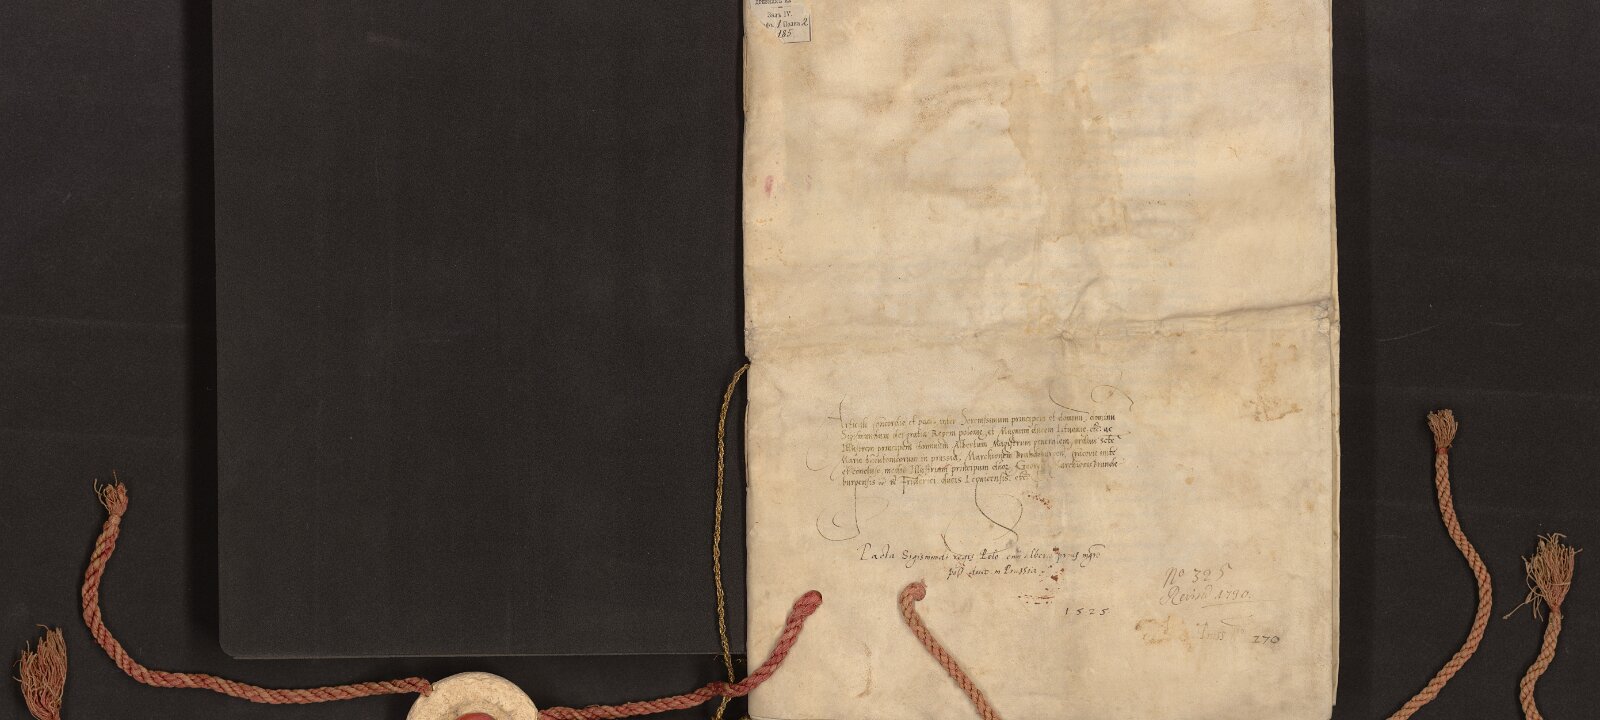 Залъ IV.
185
Articuli concordie et pacis inter Serenissimum principem et dominu, dominu
Sigismundum dei gratia Regem polonie, et Magnum ducem Lituanie, etc: ac
Illustrem principem dominum Albertum Magistrum generalem, ordinis
Marie in prussia, Marchionem Brandeburgen,
et conclusi, medio Illustrium principum duor, Georgii archionis brande
burgensis et Friderici ducis Legnicensis: etc
Pacta Sigismundi regis Polo cum Alberto
duce in Prussia
1525
No 325
Revisu 1790.
270